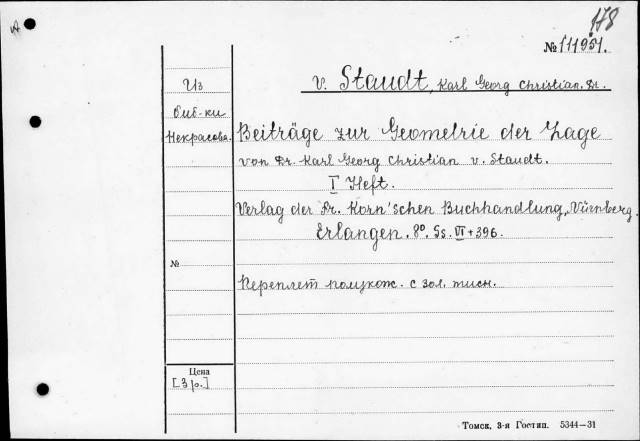 А
178
№ 111951.
Из
биб-ки
Некрасова.
v. Staudt, Karl Georg Christian, Dr.
Beiträge zur Geometrie der Lage
von Dr. Karl Georg Christian v. Staudt.
I Heft.
Verlag der Dr. Korn'schen Buchhandlung, Nürnberg.
Erlangen. 8°. Ss. VI + 396.
№
Переплет полукож. с зол. тисн.
Цена
[3 р.]
Томск, 3-я Гостип. 5344—31